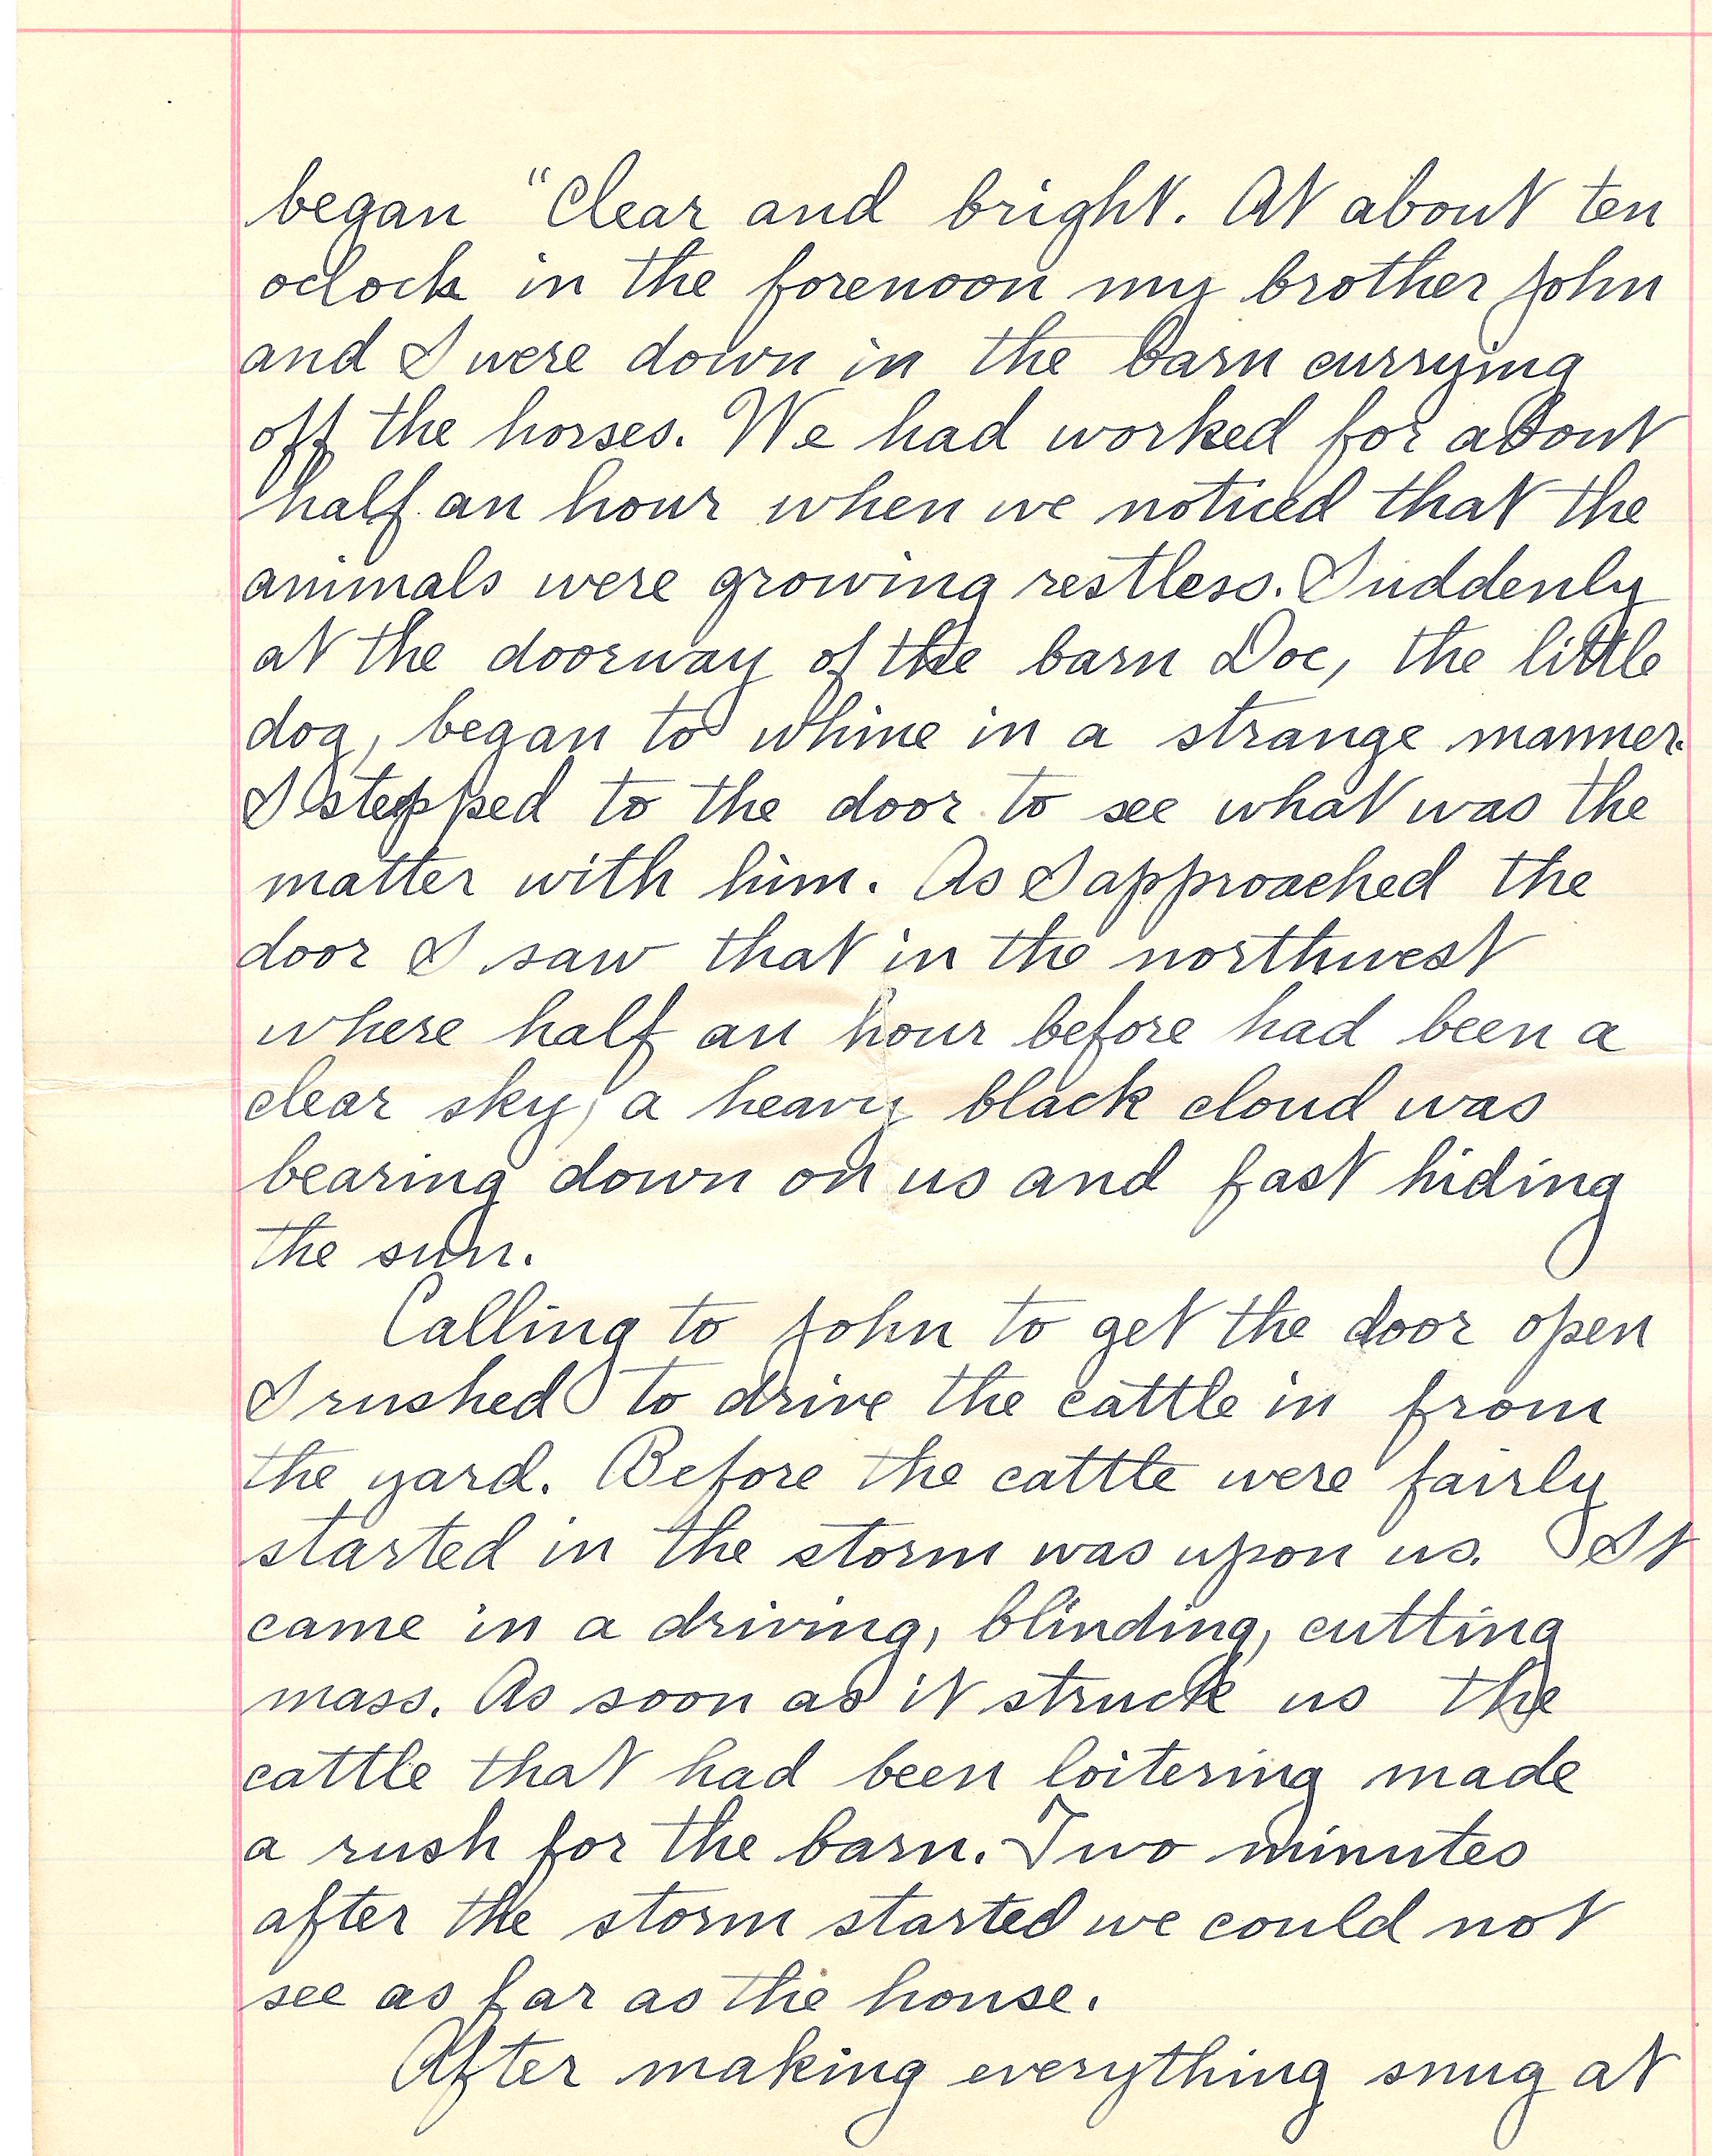 began "Clear and bright. At about ten
oclock in the forenoon my brother John
and I were down in the barn currying
off the horses. We had worked for about
half an hour when we noticed that the
animals were growing restless. Suddenly
at the doorway of the barn Doc, the little
dog, began to whine in a strange manner.
I stepped to the door to see what was the
matter with him. As I approached the
door I saw that in the northwest
where half an hour before had been a
clear sky, a heavy black cloud was
bearing down on us and fast hiding
the sun.
Calling to John to get the door open
I rushed to drive the cattle in from
the yard. Before the cattle were fairly
started in the storm was upon us. It
came in a driving, blinding, cutting
mass. As soon as it struck us the
cattle that had been loitering made
a rush for the barn. Two minutes
after the storm started we could not
see as far as the house.
After making everything snug at